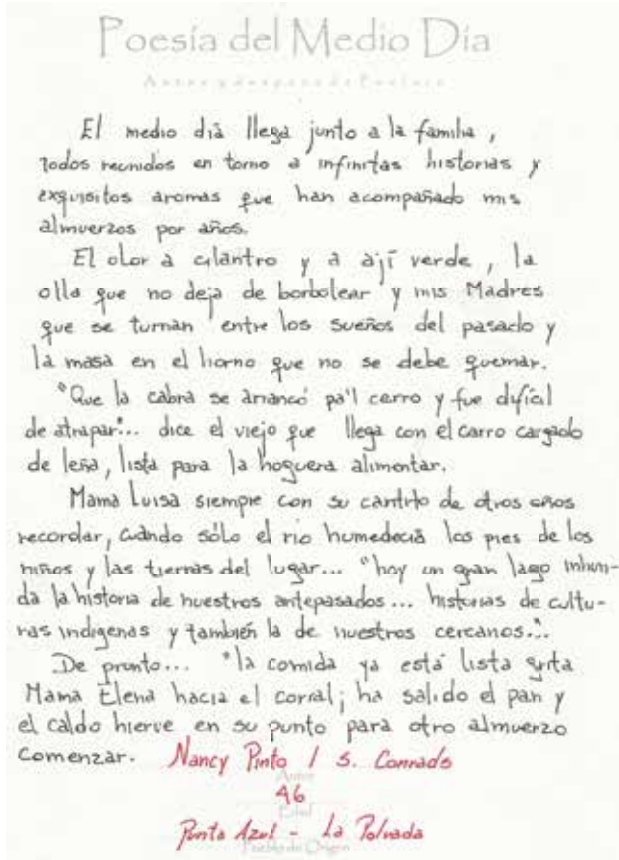 Poesía del Medio Día
El medio día llega junto a la familia,
todos reunidos en torno a infinitas historias y
exquisitos aromas que han acompañado mis
almuerzos por años.
El olor a cilantro y a ají verde, la
olla que no deja de borbolear y mis Madres
que se turnan entre los sueños del pasado y
la masa en el horno que no se debe quemar.
"Que la cabra se arrancó pa'l cerro y fue difícil
de atrapar"... dice el viejo que llega con el carro cargado
de leña, lista para la hoguera alimentar.
Mama Luisa siempre con su cantito de otros años
recordar, cuándo sólo el rio humedecía los pies de los
niños y las tierras del lugar... "hoy un gran lago inhun-
da la historia de nuestros antepasados... historias de cultu-
ras indigenas y también la de nuestros cercanos...
De pronto... "la comida ya está lista grita
Mama Elena hacia el corral; ha salido el pan y
el caldo hierve en su punto para otro almuerzo
comenzar. Nancy Pinto / S.
Autor
46
Edad
Punta Azul - La Polvada
Pueblo de Origen